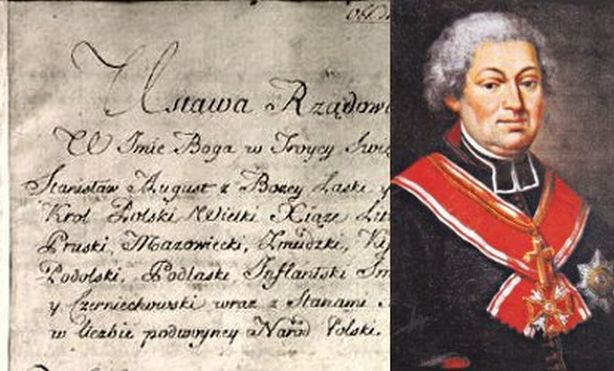 Ustawa Rządow
W Imie Boga w Troycy Swię
Stanisław August z Bozey Łaski y
Krol Polski Wielki Xiąze Lit
Pruski, Mazowiecki, Zmudzki, Ki
Podolski, Podlaski Inflantski Sm
y Czerniechowski wraz z Stanami
w liczbie podwoyney Narod Polski.